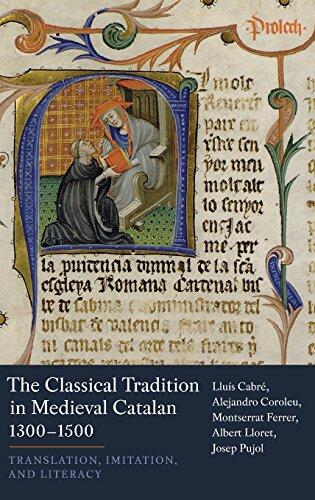 Prolech
l molt
Reverēt
pare en
xrist e se
yor meu
molt alt
lo senyor
en Jac
me per
la puidencia diuinal de la scā
esgleya Romana Cardenal bis
be de sabina
bisbat de valencia
ni canals del orde dels frares p
The Classical Tradition
in Medieval Catalan
1300–1500
TRANSLATION, IMITATION,
AND LITERACY
Lluís Cabré,
Alejandro Coroleu,
Montserrat Ferrer,
Albert Lloret,
Josep Pujol